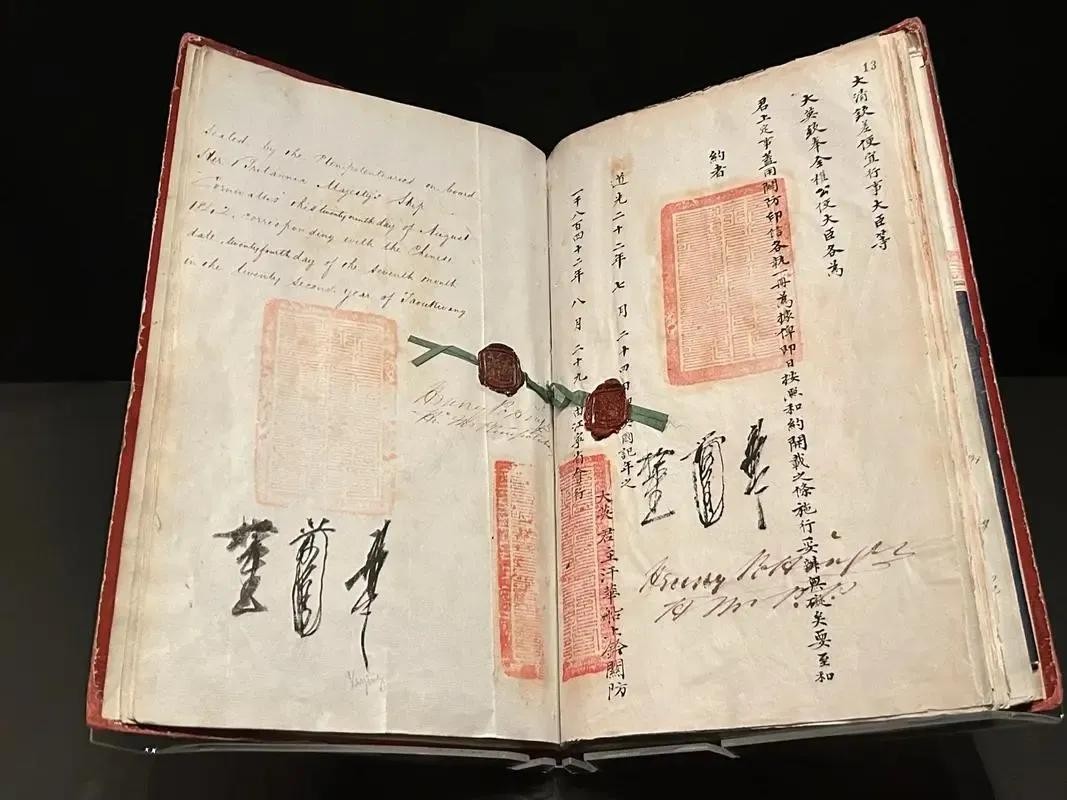 Sealed by the Plenipotentiaries on board
Her Britannic Majesty's Ship
Cornwallis this twenty ninth day of August
1842, corresponding with the Chinese
date, twenty fourth day of the seventh month
in the twenty second year of Taoukwang
13
大清欽差便宜行事大臣等
大英欽奉全權公使大臣各為
君上定事蓋用關防印信各執一冊為據俾即日按照和約開載之條施行妥辦無礙矣要至和
約者
道光二十二年七月二十四日即英國記年之
一千八百四十二年八月二十九日由江寧省會行
大英君主汗華船上鈐關防
Henry Pottinger